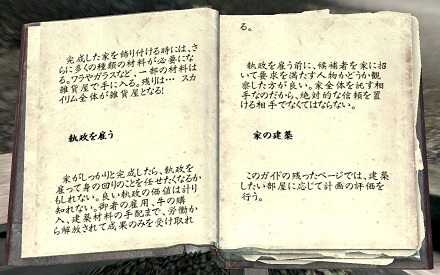 完成した家を飾り付ける時には、さ
らに多くの種類の材料が必要にな
る。ワラやガラスなど、一部の材料は
雑貨屋で手に入る。残りは… スカ
イリム全体が雑貨屋となる!
執政を雇う
家がしっかりと完成したら、執政を
雇って身の回りのことを任せたくなるか
もしれない。良い執政の価値は計り
知れない。御者の雇用、牛の購
入、建築材料の手配まで、労働か
ら解放されて成果のみを受け取れ
る。
執政を雇う前に、候補者を家に招
いて要求を満たす人物かどうか観
察した方が良い。家全体を託す相
手なのだから、絶対的な信頼を置
ける相手でなくてはならない。
家の建築
このガイドの残ったページでは、建築
したい部屋に応じて計画の評価を
行う。